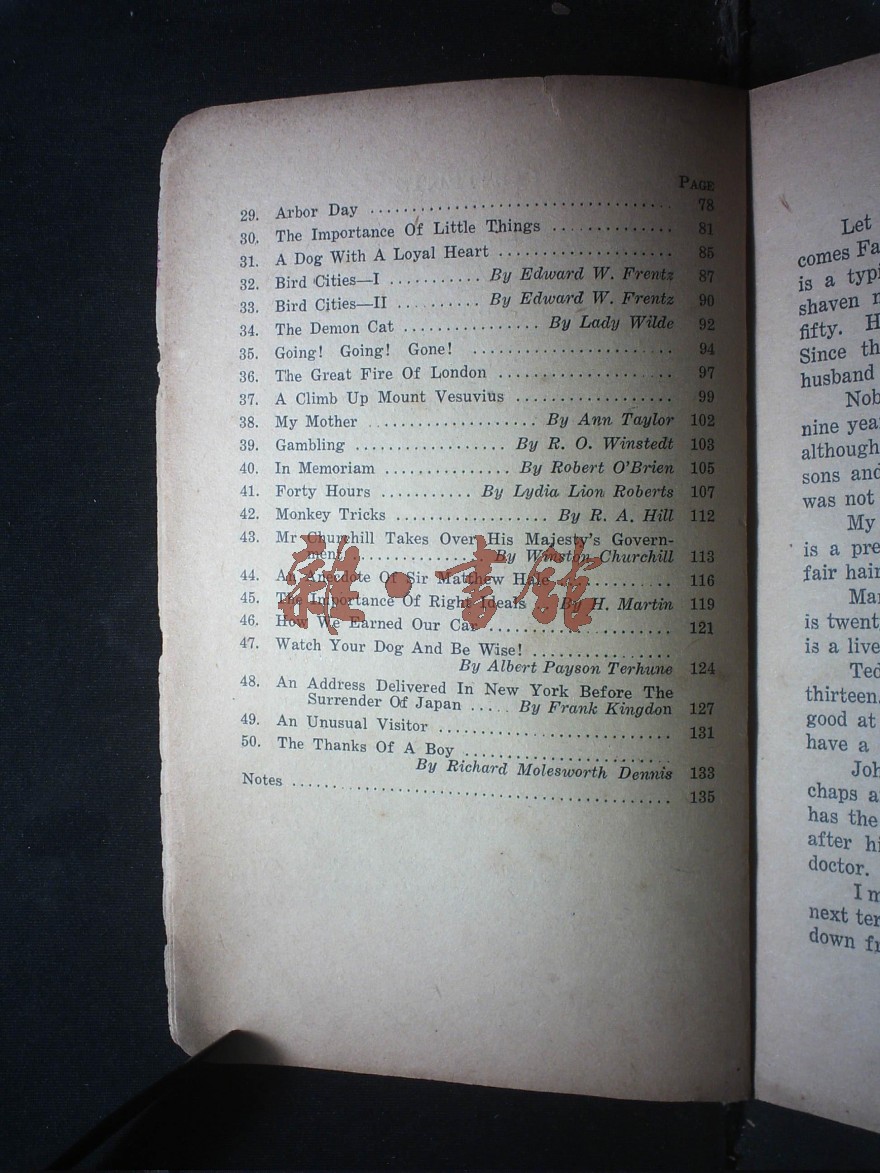 PAGE
29. Arbor Day .................................... 78
30. The Importance Of Little Things ............... 81
31. A Dog With A Loyal Heart ..................... 85
32. Bird Cities—I ........... By Edward W. Frentz 87
33. Bird Cities—II .......... By Edward W. Frentz 90
34. The Demon Cat ................ By Lady Wilde 92
35. Going! Going! Gone! ........................ 94
36. The Great Fire Of London ..................... 97
37. A Climb Up Mount Vesuvius ................... 99
38. My Mother .................... By Ann Taylor 102
39. Gambling .................. By R. O. Winstedt 103
40. In Memoriam ............... By Robert O'Brien 105
41. Forty Hours ........... By Lydia Lion Roberts 107
42. Monkey Tricks ................... By R. A. Hill 112
43. Mr Churchill Takes Over His Majesty's Govern-
ment ................. By Winston Churchill 113
44. An Anecdote Of Sir Matthew Hale .............. 116
45. The Importance Of Right Ideals .... By H. Martin 119
46. How We Earned Our Car ....................... 121
47. Watch Your Dog And Be Wise! .................
By Albert Payson Terhune 124
48. An Address Delivered In New York Before The
Surrender Of Japan ..... By Frank Kingdon 127
49. An Unusual Visitor ............................ 131
50. The Thanks Of A Boy .........................
By Richard Molesworth Dennis 133
Notes .............................................. 135
雜·書館
Let
comes Fa
is a typi
shaven
fifty. H
Since th
husband
Nob
nine yea
although
sons and
was not
My
is a pre
fair hair
Mar
is twent
is a live
Ted
thirteen.
good at
have a
Joh
chaps a
has the
after hi
doctor.
I m
next ter
down fr